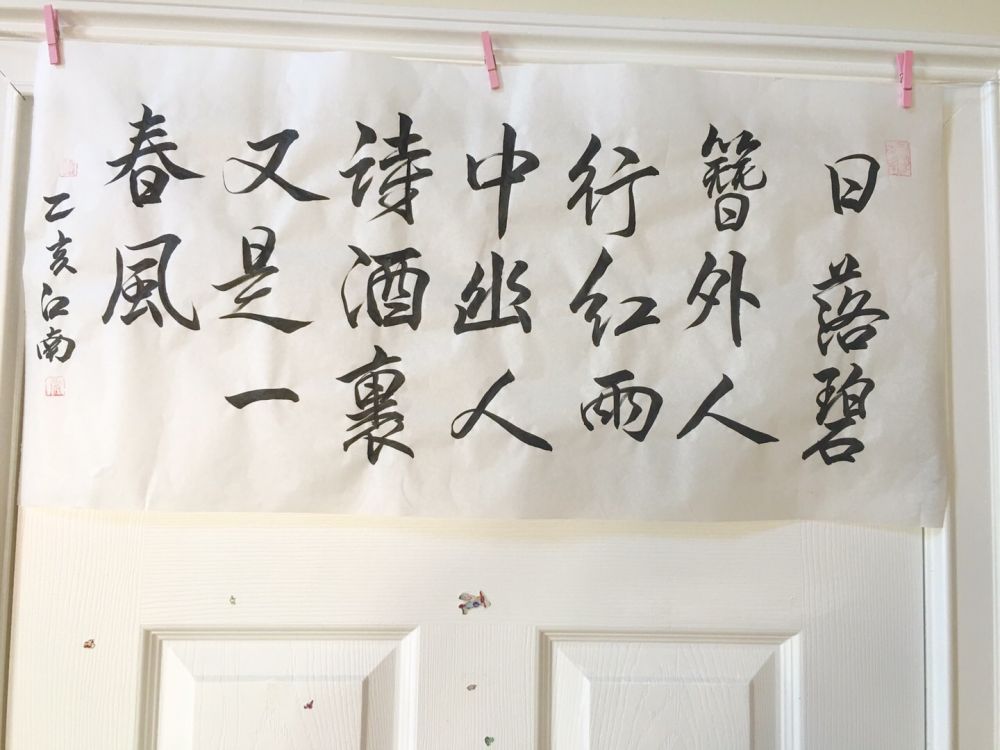 日落碧
簪外人
行紅雨
中幽人
詩酒裏
又是一
春風
乙亥江南